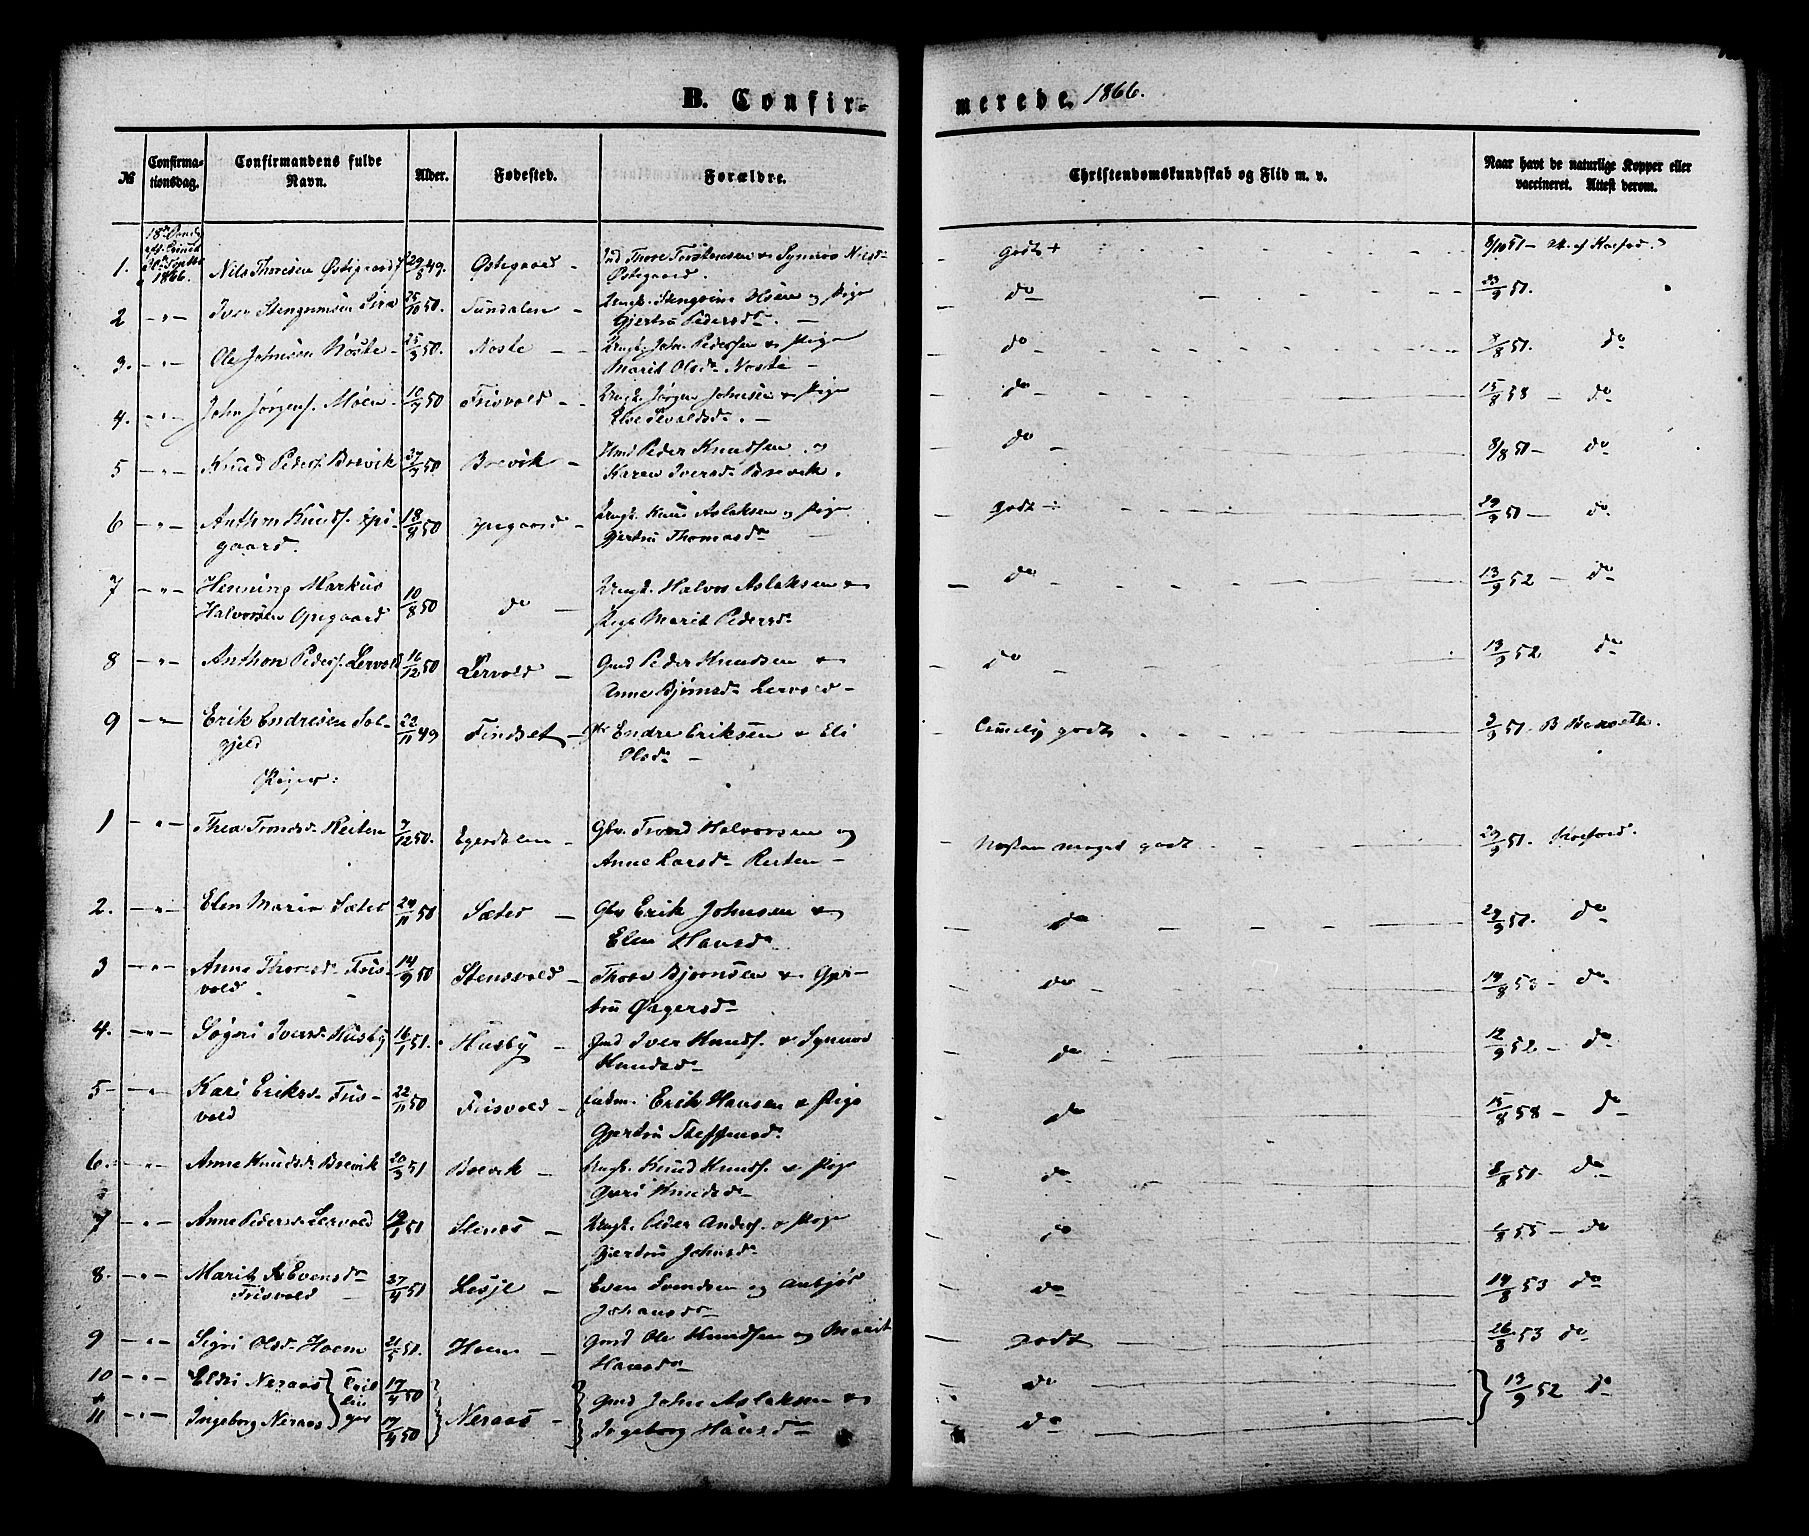 B. Confir-
merede. 1866.
№
Confirma-
tionsdag.
Confirmandens fulde
Navn.
Alder.
Fødested.
Forældre.
Christendomskundskab og Flid m. v.
Naar havt de naturlige Kopper eller
vaccineret. Attest derom.
1866.
1. Nils Thoresen Østigaard 29/8 49. Østegaard - Thore Torstensen & Synnøv Nilsd-
Østegaard.
godt + 8/10 51 -
2 - " - Iver 25/10 50. Sundalen - og Pige
Gjertru Pedersd.
do - 23/9 51.
3. - " - Ole Johnsen Nöste - 25/3 50. Noste - John Pedersen & Pige
Marit Olsd. Noste -
do - 8/8 51. do
4. - " - John Jørgens. Moen 16/7 50 Frisvold - Jørgen Johnsen & Pige
do - 15/8 58 - do
5 - " - Knud Peders. Brevik 27/7 50 Brevik - Gmd Peder Knudsen og
Karen Iversd. Brevik.
do - 8/8 51 - do
6 - " - Anthon Knuds. Opi-
gaard. 18/8 50 Opegaard - Knud Aslaksen og Pige
Gjertru Thomasd.
godt 29/9 51 - do
7 - " - Henning Markus
Halvorsen Opigaard 10/8 50 do - Halvor Aslaksen &
Pige Marit Pedersd.
do 13/9 52 - do
8 - " - Anthon Peders. Lervold 16/12 50 Lervold - Gmd Peder Knudsen &
Anne Bjørnsd. Lervold -
do - 13/9 52 do
9 - " - Erik Endresen Sol-
gjeld 22/11 49 Tindset - Endre Eriksen & Eli
Olsd. -
Temelig godt 3/9 51.
Piger:
1 - " - Thea Trondsd. Reiten 7/12 50. Egersdalen Gbr. Trond Halvorsen og
Anne Larsd. Reiten -
Næsten meget godt 29/9 51.
2. - " - Elen Maria Sæter 24/11 50 Sæter - Gbr Erik Johnsen &
Elen Hansd.
do 29/9 51. do
3 - " - Anne Thoresd. Fris-
vold 14/9 50 Stensvold - Thore Bjørnsen & Gjer-
tru
do - 14/8 53 - do
4. - " - Sigri Iversd. Husby 16/1 51. Husby - Gmd Iver Knuds. & Synnøv
Knudsd.
do 12/9 52 - do
5 - " - Kari Eriksd. Fris-
vold 22/11 50 Frisvold - Erik Hansen & Pige
Gjertru Steffensd.
do 15/8 58 - do
6. - " - Anne Knudsd. Brevik 20/3 51 Brevik - Knud Knuds. & Pige
Guri Knudsd.
do 8/8 51. do
7 - " - Anne Pedersd. Lervold 51 Stenes - Peder Anders. & Pige
Gjertru Johnsd.
do 55 - do
8. - " - Marit Evensd.
Frisvold 27/4 51 Lesje - Even Svendsen og Anbjør
Johansd.
do 14/8 53 do
9 - " - Sigri Olsd. Hoem 21/5 51. Hoem - Gmd Ole Knudsen og Marit
Hansd.
godt 26/8 53 do
10 - " - Eldri Neraas Tvil 17/4 50
do
11 - " - Ingeborg Neraas lin ger 17/4 50 Neraas - Gmd John Aslaksen &
Ingeborg Hansd.
do 13/9 52 do